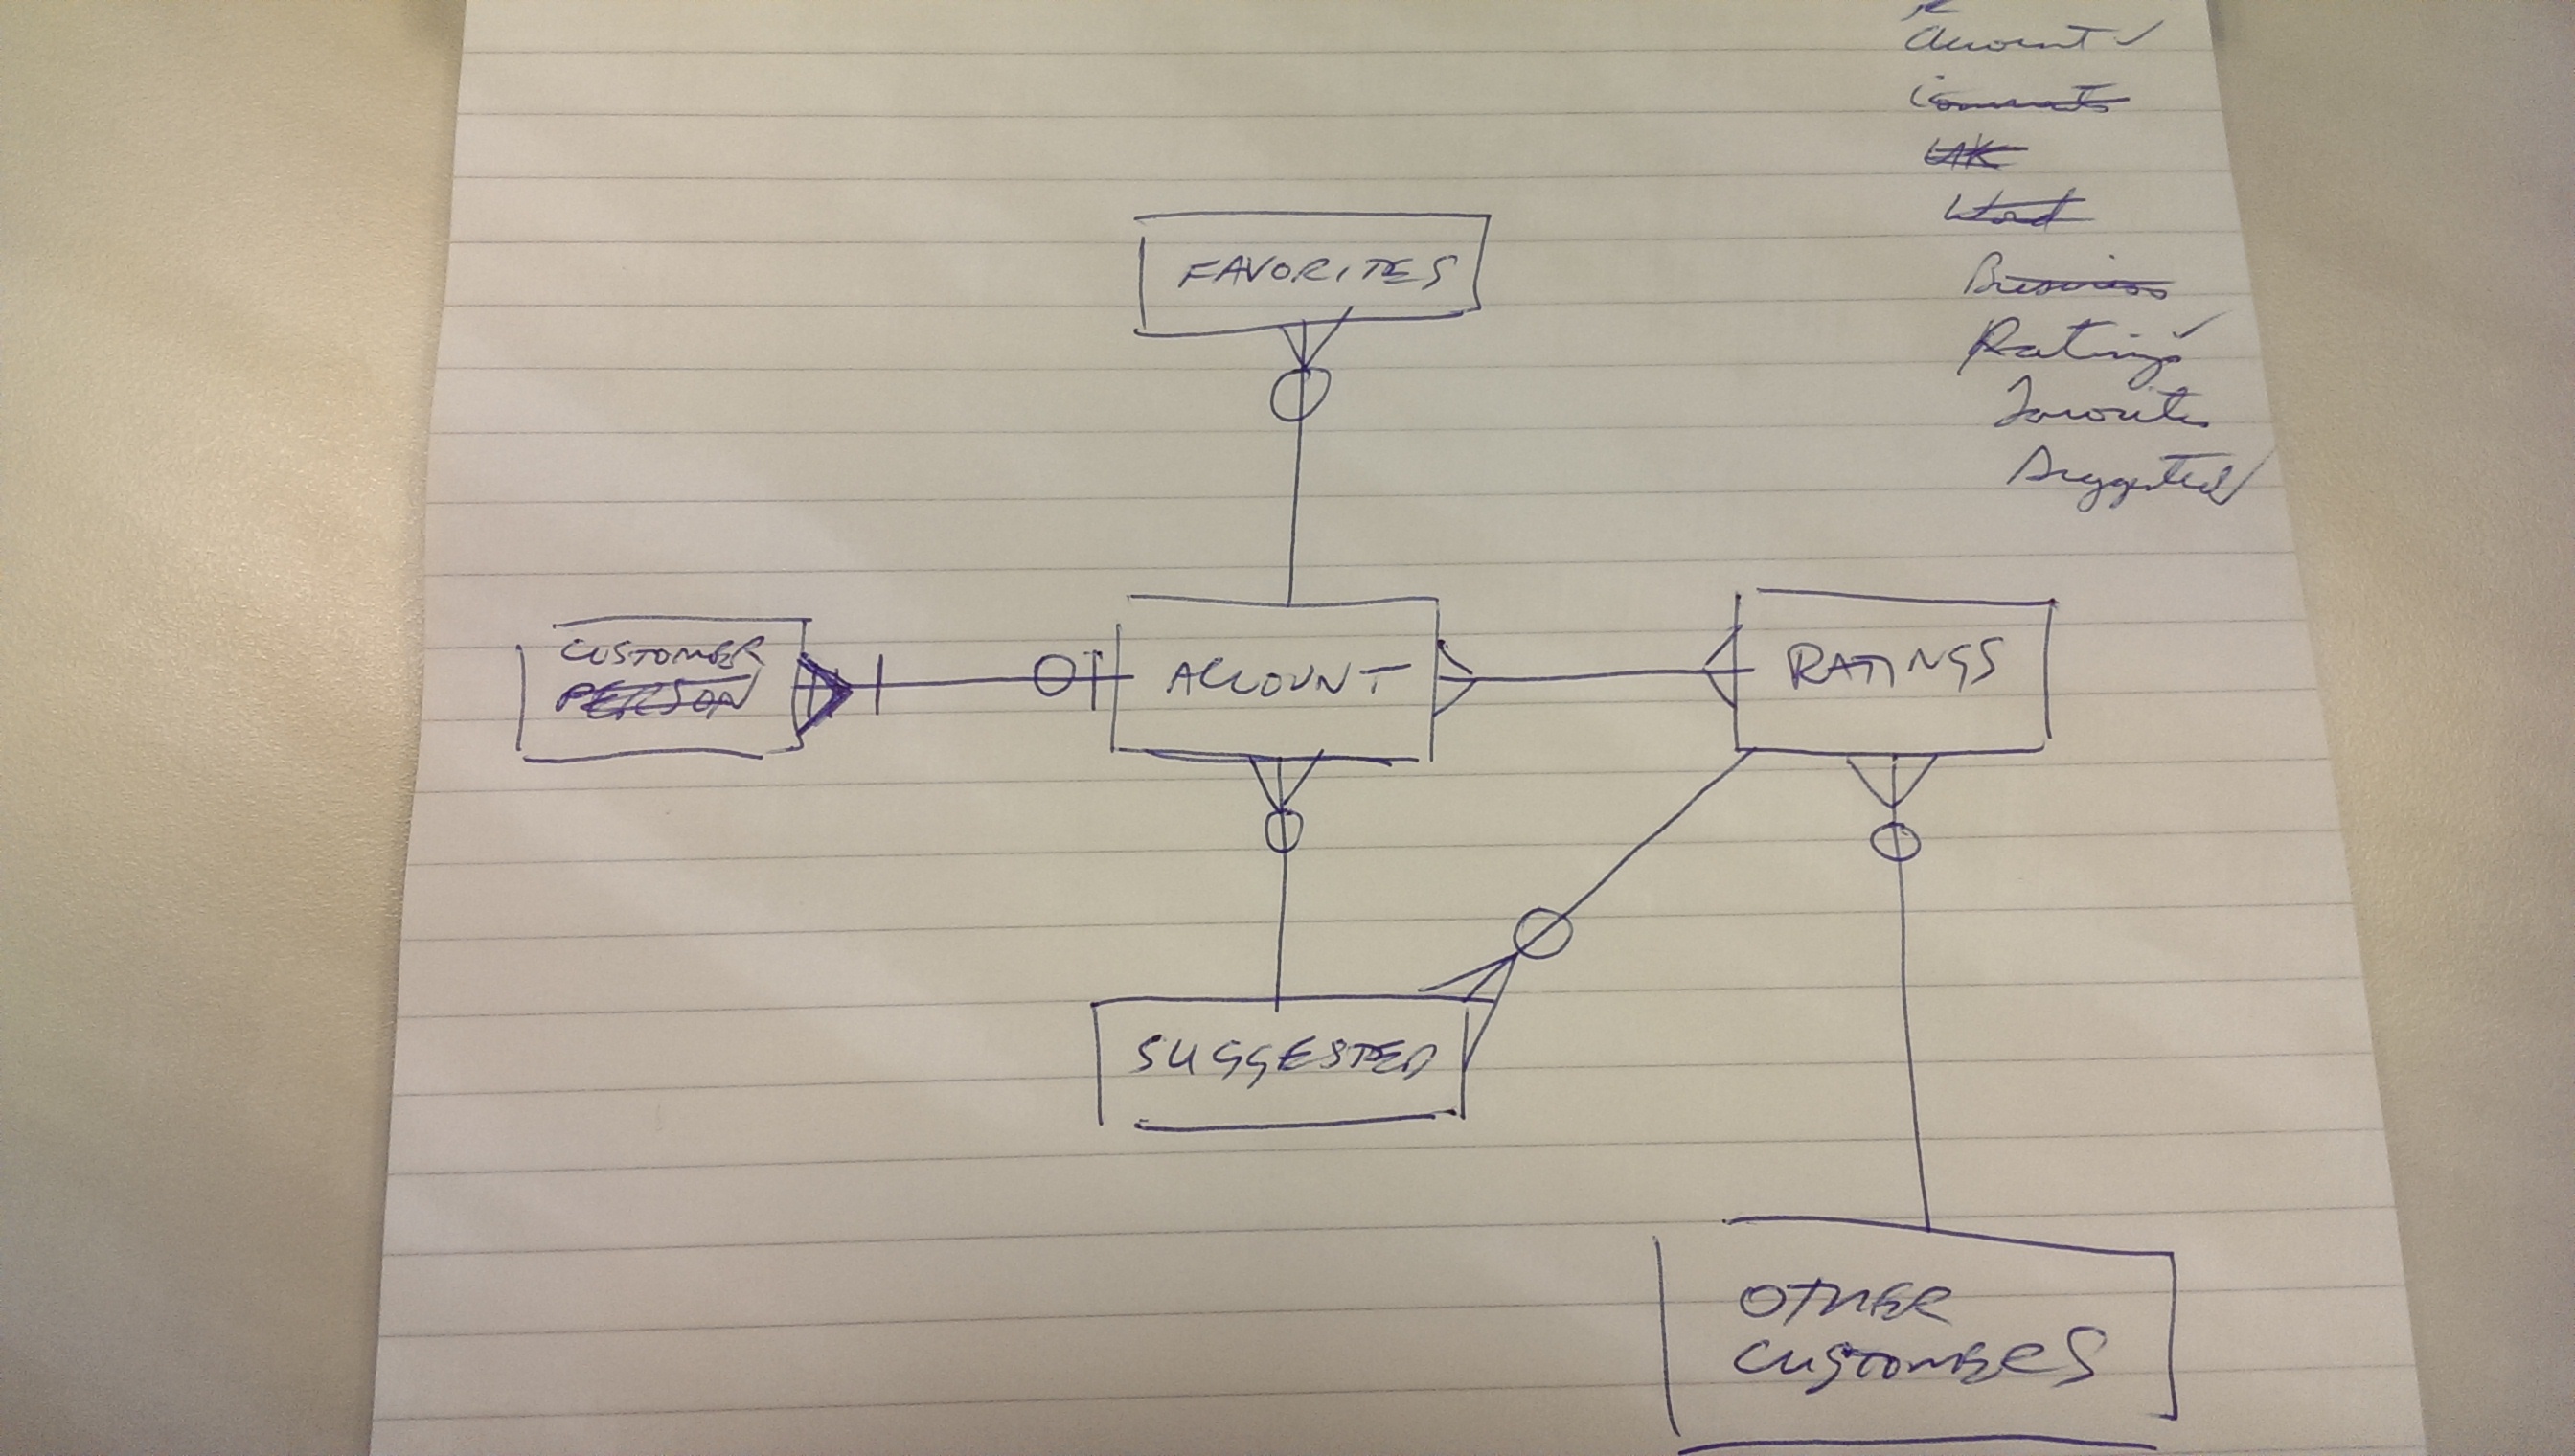 Account ✓
Comments
UK
Word
Business
Ratings ✓
Favorites
Suggested ✓
FAVORITES
CUSTOMER
PERSON
ACCOUNT
RATINGS
SUGGESTED
OTHER
CUSTOMERS